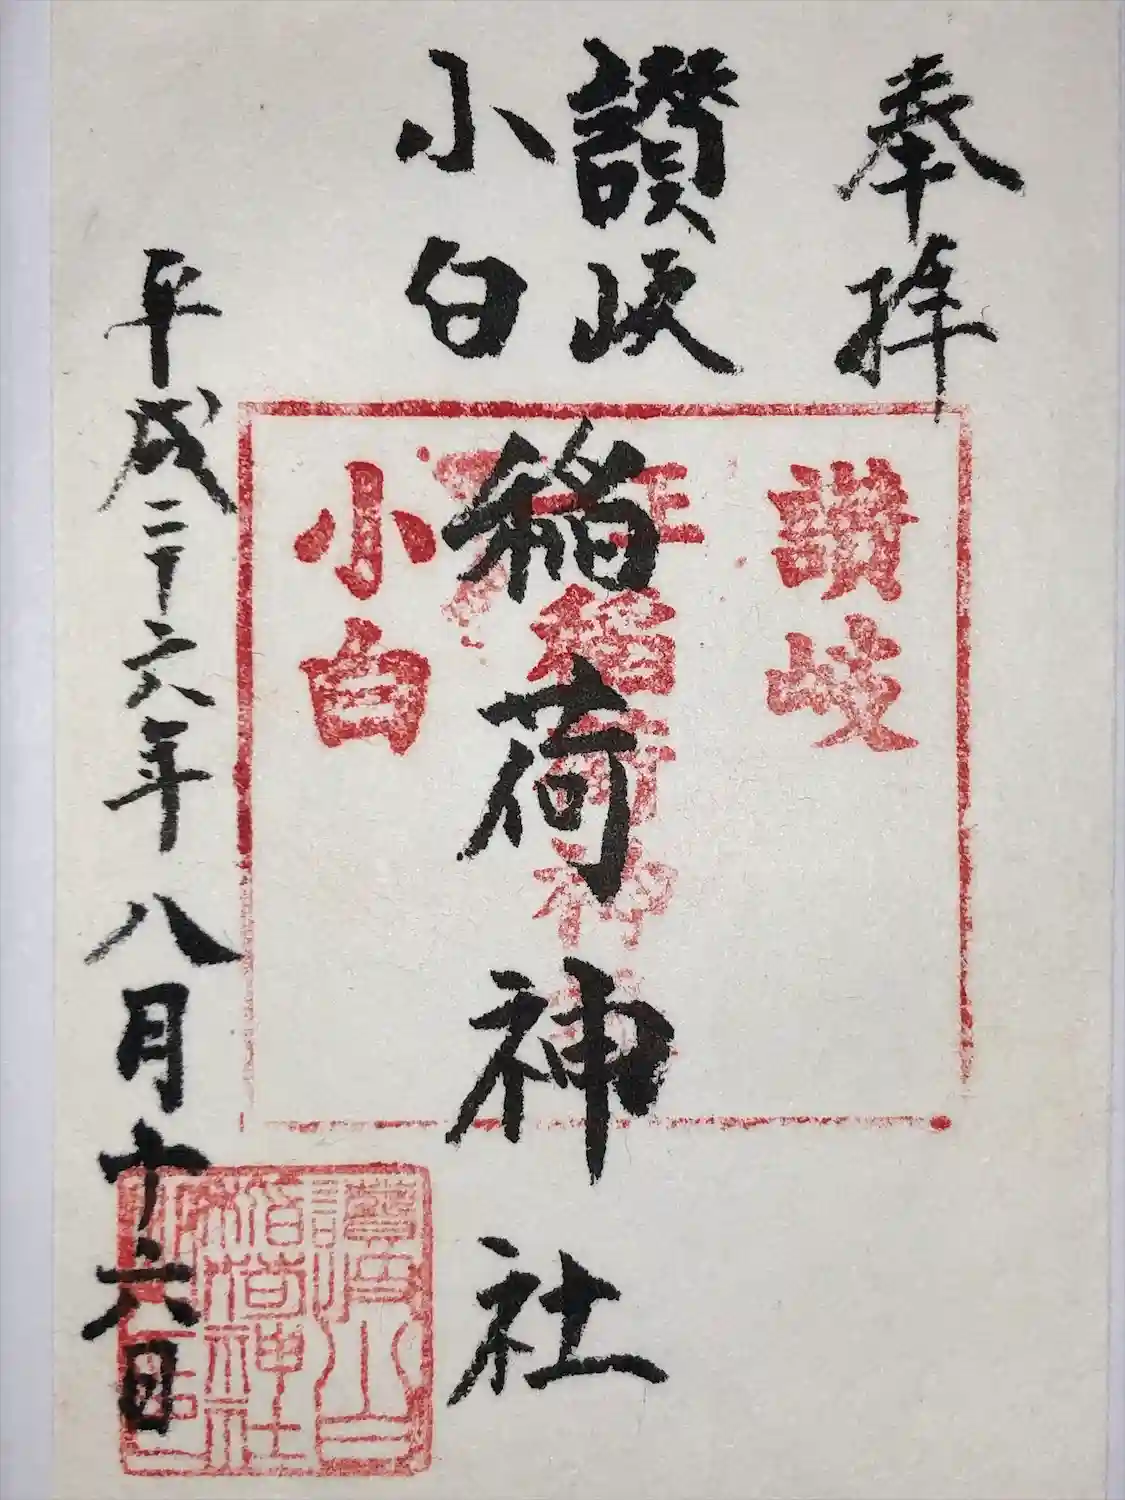 奉拝
讃岐
小白
稲荷神社
平成二十六年八月十六日
讃岐
正
稲荷神社
小白
讃岐小白
稲荷神社